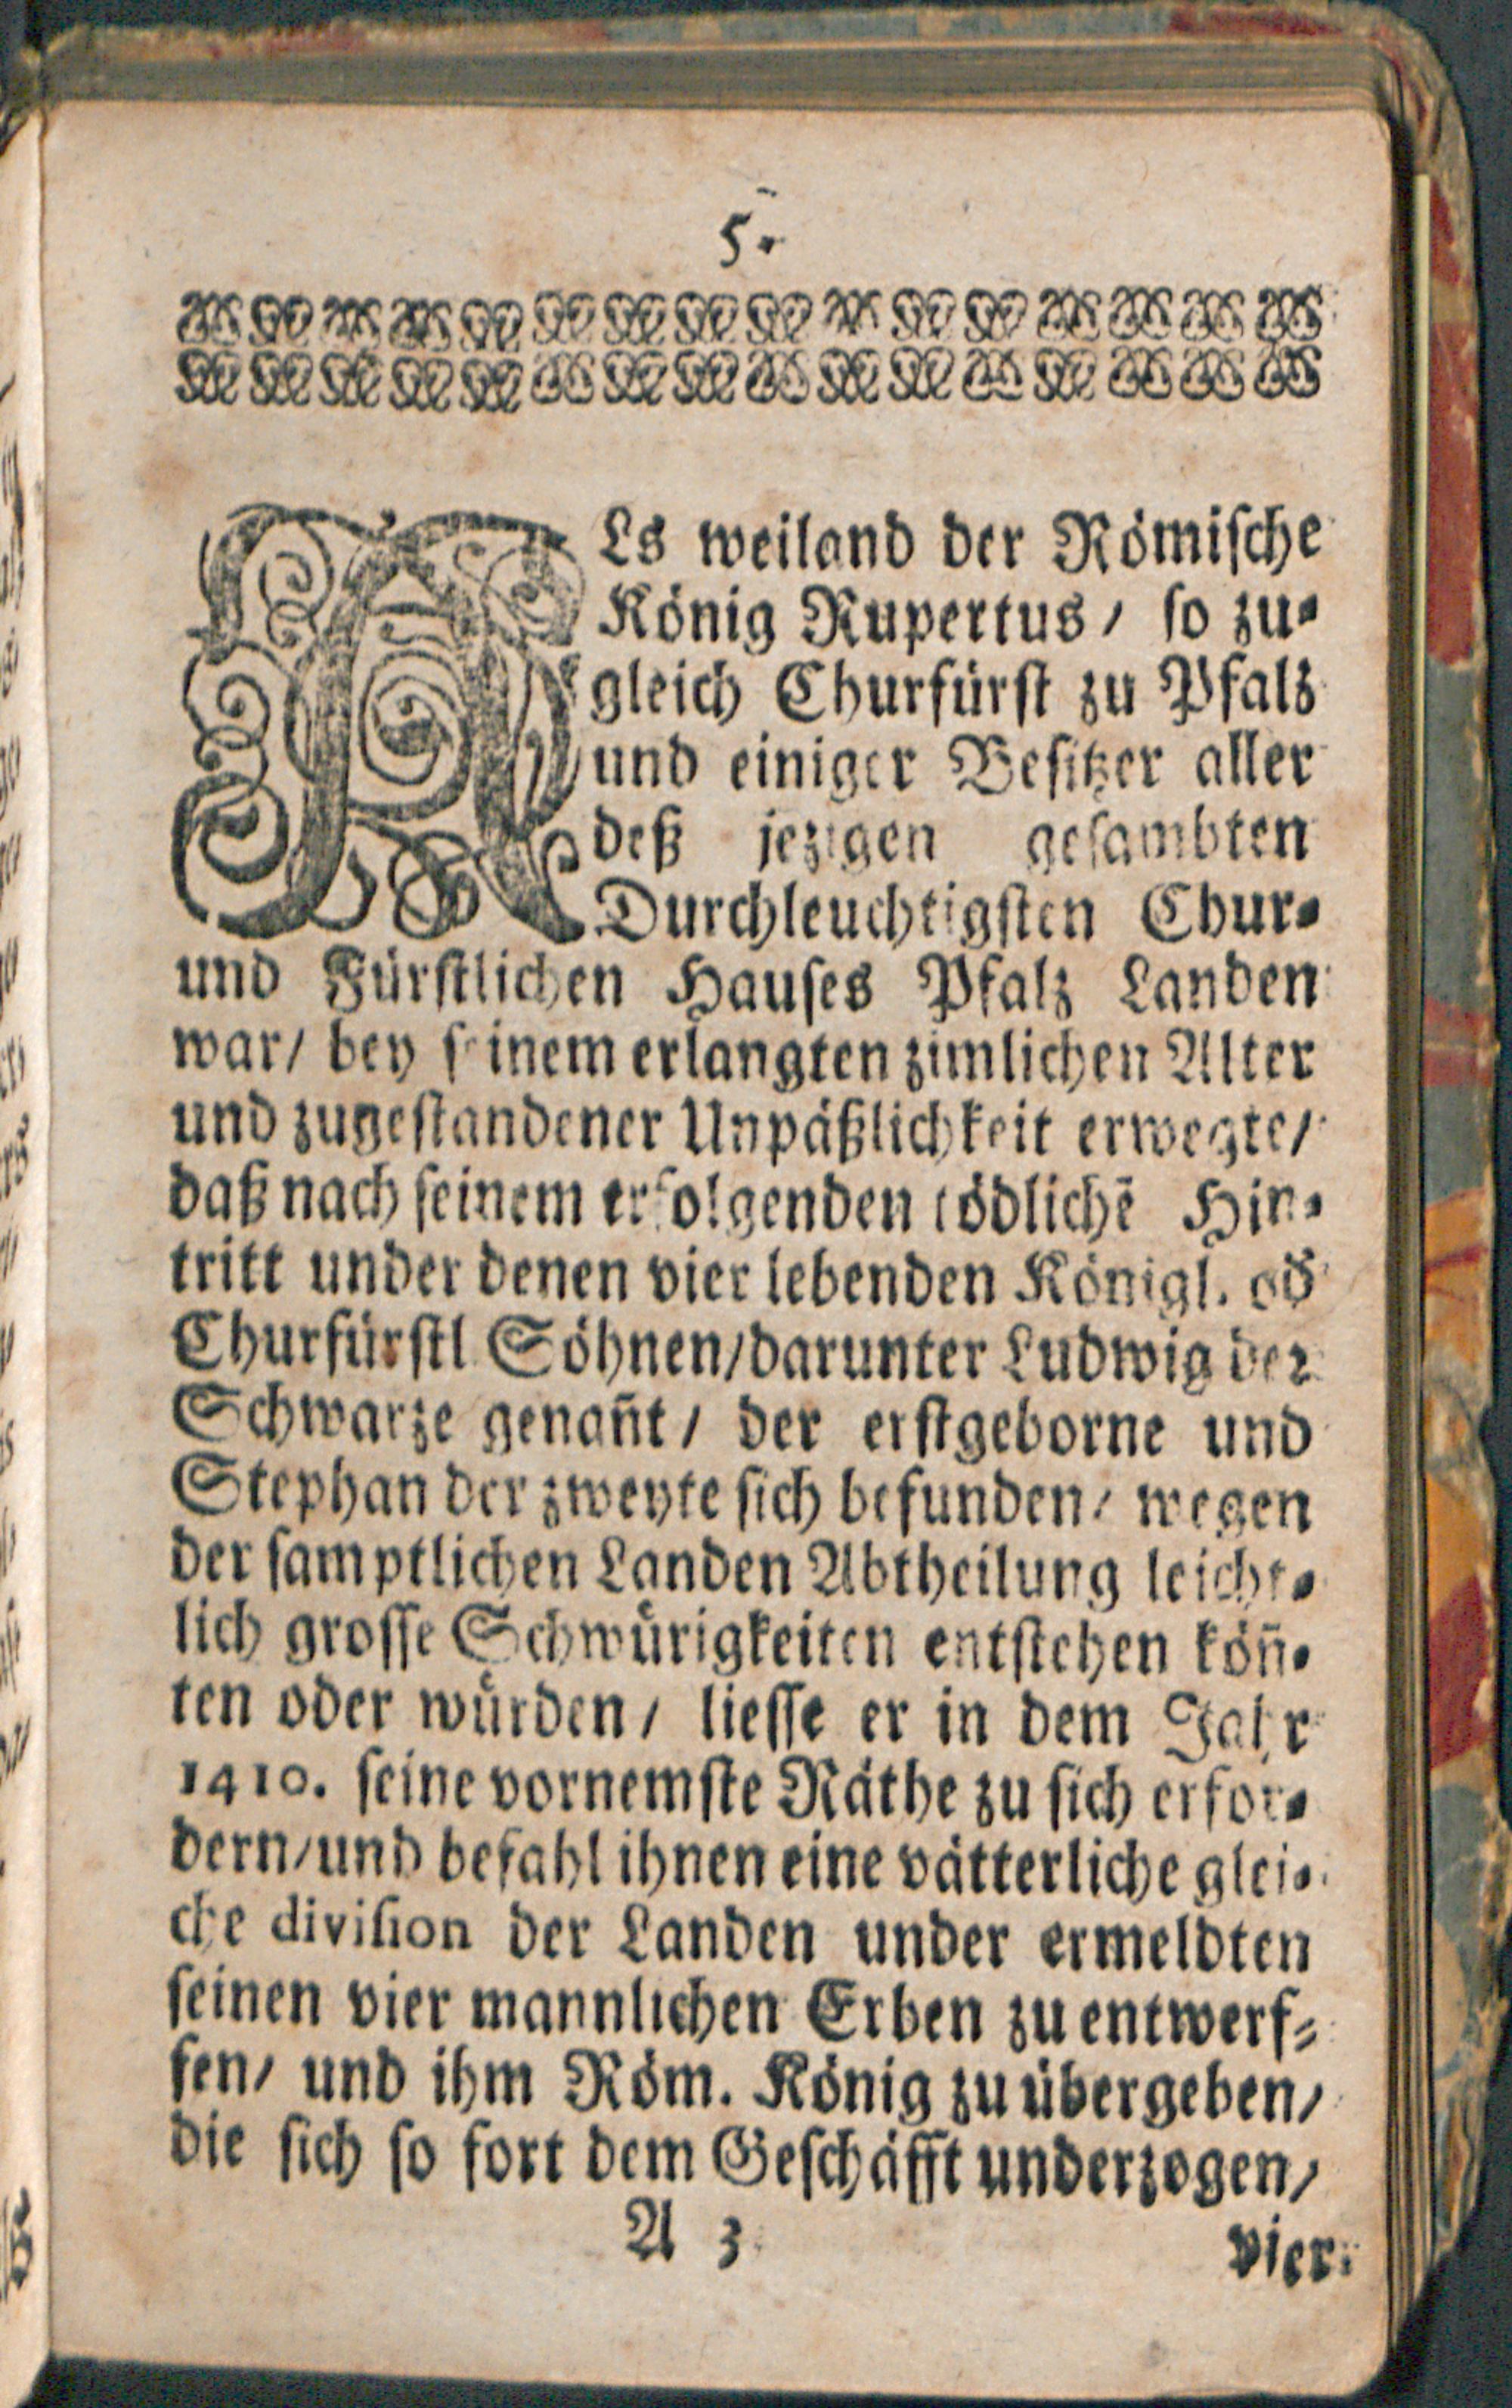 5.
ALs weiland der Römische
König Rupertus / so zu-
gleich Churfürst zu Pfalz
und einiger Besitzer aller
deß jezigen gesambten
Durchleuchtigsten Chur-
und Fürstlichen Hauses Pfalz Landen
war / bey seinem erlangten zimlichen Alter
und zugestandener Unpäßlichkeit erwegte /
daß nach seinem erfolgenden tödlichē Hin-
tritt under denen vier lebenden Königl. od
Churfürstl Söhnen / darunter Ludwig der
Schwarze genañt / der erstgeborne und
Stephan der zweyte sich befunden / wegen
der samptlichen Landen Abtheilung leicht-
lich grosse Schwürigkeiten entstehen köñ-
ten oder würden / liesse er in dem Jahr
1410. seine vornemste Räthe zu sich erfor-
dern / und befahl ihnen eine vätterliche glei-
che division der Landen under ermeldten
seinen vier mannlichen Erben zu entwerf-
fen / und ihm Röm. König zu übergeben /
die sich so fort dem Geschäfft underzogen /
A 3
vier-